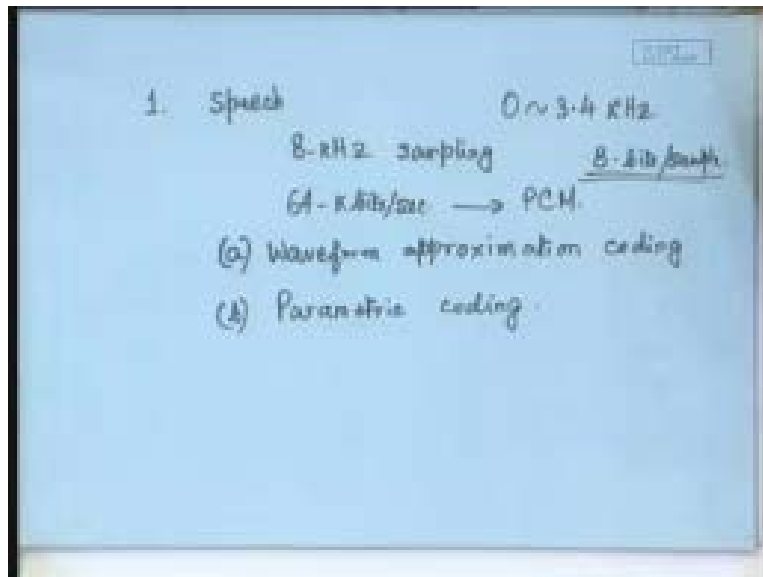 1. Speech 0 ~ 3.4 KHz
8-KHz sampling 8-bits/sample
64-Kbits/sec → PCM.
(a) Waveform approximation coding
(b) Parametric coding.